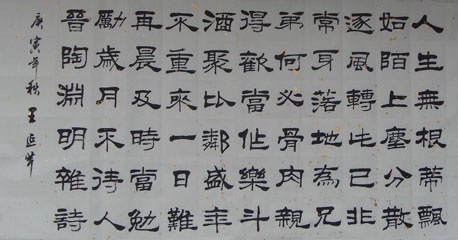 人生無根蒂飄
如陌上塵分散
逐風轉此已非
常身落地為兄
弟何必骨肉親
得歡當作樂斗
酒聚比鄰盛年
不重來一日難
再晨及時當勉
勵歲月不待人
晉陶淵明雜詩
庚寅年秋王